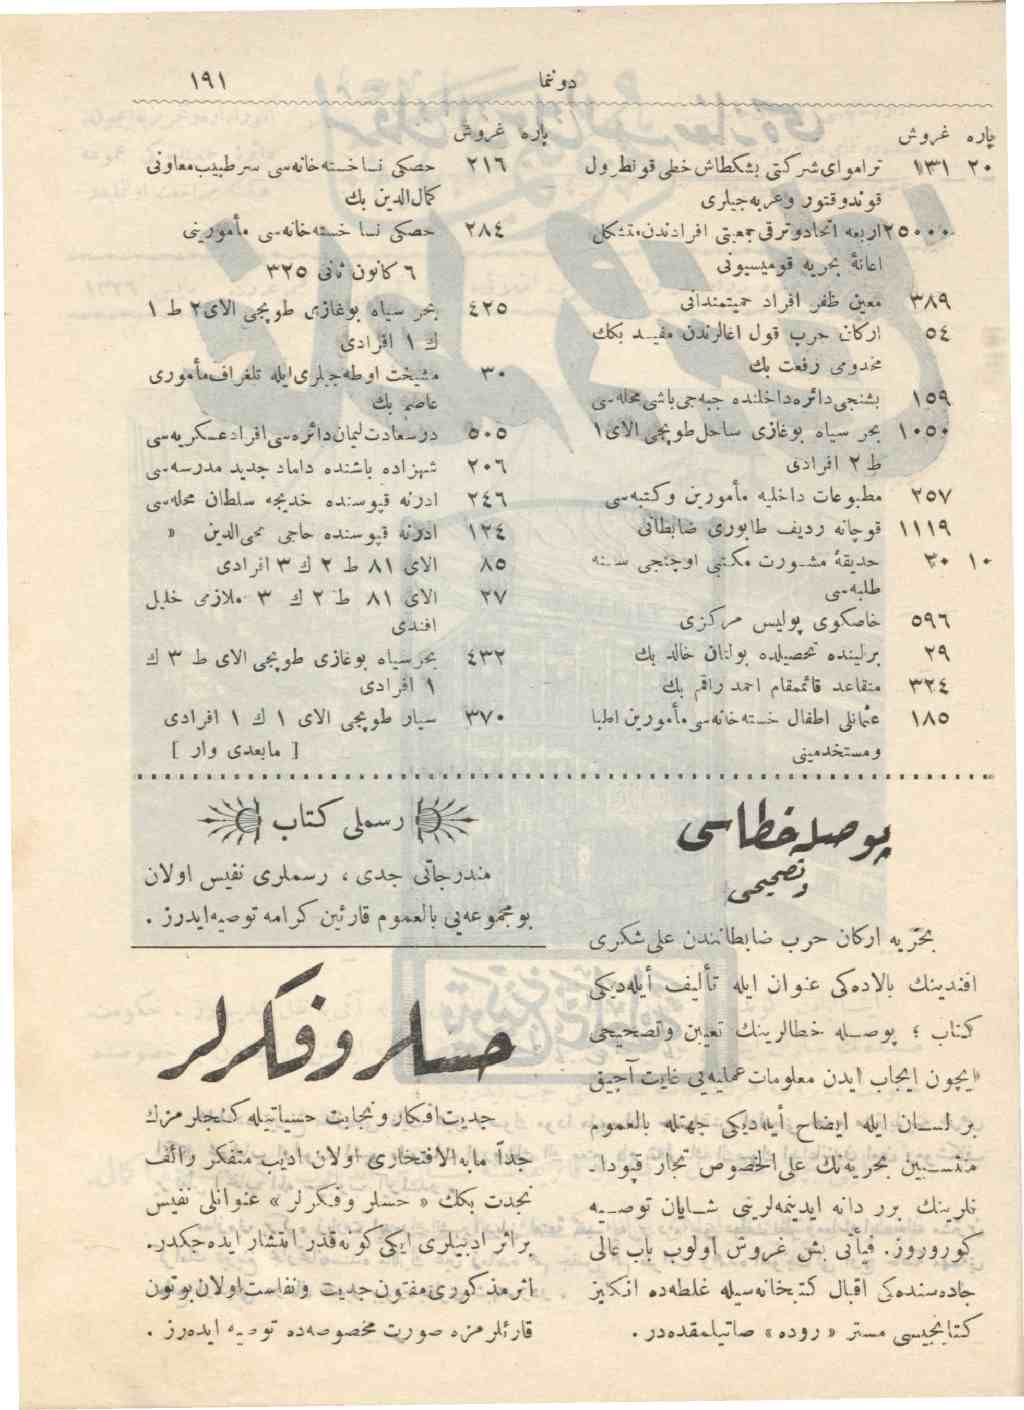 دوننما
١٩١
پاره غروش
٢٠ ١٣١ تراموای شركتی بشكطاش خطی قونطرول
قوندوقتور وعربه‌جیلری
٢٥٠٠٠ اربعه اتحاد وترقی جمعیتی افرادندن متشكل
اعانهٔ بحریه قومیسیونی
٣٨٩ معین ظفر افراد حمیتمندانی
٥٤ اركان حرب قول اغالرندن مفید بكك
مخدومی رفعت بك
١٥٩ بشنجی دائره داخلنده جبه‌جی باشی محله‌سی
١٠٥٠ بحر سیاه بوغازی ساحل طوپجی الای ١
ط ٢ افرادی
٢٥٧ مطبوعات داخلیه مأمورین وكتبه‌سی
١١١٩ قوچانه ردیف طابوری ضابطانی
١٠ ٣٠ حدیقهٔ مشورت مكتبی اوچنجی سنه
طلبه‌سی
٥٩٦ خاصكوی پولیس مركزی
٢٩ برلینده تحصیلده بولنان خالد بك
٣٢٤ متقاعد قائممقام احمد راقم بك
١٨٥ عثمانلی اطفال خسته‌خانه‌سی مأمورین اطبا
ومستخدمینی
پاره غروش
٢١٦ حصكی نسا خسته‌خانه‌سی سرطبیب معاونی
كمال‌الدین بك
٢٨٤ حصكی نسا خسته‌خانه‌سی مأمورینی
٦ كانون ثانی ٣٢٥
٤٢٥ بحر سیاه بوغازی طوپجی الای ٢ ط ١
ك ١ افرادی
٣٠ مشیخت اوطه‌جیلری ایله تلغراف مأموری
عاصم بك
٥٠٥ درسعادت لیمان دائره‌سی افراد عسكریه‌سی
٢٠٦ شهزاده باشنده داماد جدید مدرسه‌سی
٢٤٦ ادرنه قپوسنده خدیجه سلطان محله‌سی
١٢٤ ادرنه قپوسنده حاجی محی‌الدین »
٨٥ الای ٨١ ط ٢ ك ٣ افرادی
٢٧ الای ٨١ ط ٢ ك ٣ ملازمی خلیل
افندی
٤٣٢ بحر سیاه بوغازی طوپجی الای ط ٣ ك
١ افرادی
٣٧٠ سیار طوپجی الای ١ ك ١ افرادی
[ مابعدی وار ]
پوصله خطاسی
وتصحیحی
بحریه اركان حرب ضابطانندن علی شكری
افندینك بالاده‌كی عنوان ایله تألیف أیله‌دیكی
كتاب ؛ پوصله خطالرینك تعیین وتصحیحی
ایچون ایجاب ایدن معلومات عملیه‌یی غایت آچیق
بر لسان ایله ایضاح أیله‌دیكی جهتله بالعموم
منتسبین بحریه‌نك علی‌الخصوص تجار قپودا-
نلرینك برر دانه ایدینمه‌لرینی شایان توصیه
كوروروز. فیأتی بش غروش اولوب باب عالی
جاده‌سنده‌كی اقبال كتبخانه‌سیله غلطه‌ده انكلیز
كتابجیسی مستر « روده » صاتیلمقده‌در .
رسملی كتاب
مندرجاتی جدی ، رسملری نفیس اولان
بو مجموعه‌یی بالعموم قارئین كرامه توصیه ایدرز .
حسلر و فكرلر
جدیت افكار ونجابت حسیاتیله كنجلرمزك
جداً مابه‌الافتخاری اولان ادیب متفكر رائف
نجدت بكك « حسلر وفكرلر » عنوانلی نفیس
بر اثر ادبیلری ایكی كونه قدر انتشار ایده‌جكدر.
اثر مذكوری مفتون جدیت ونفاست اولان بوتون
قارئلرمزه صورت مخصوصه‌ده توصیه ایده‌رز .